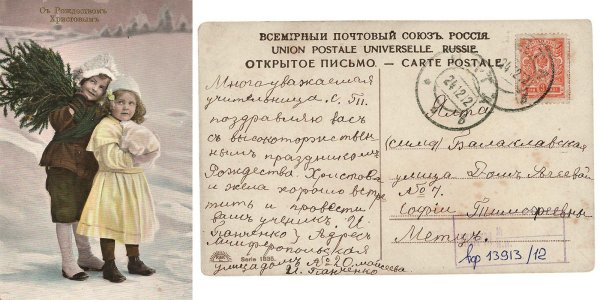 Съ Рождествомъ
Христовымъ
ВСЕМІРНЫЙ ПОЧТОВЫЙ СОЮЗЪ. РОССІЯ.
UNION POSTALE UNIVERSELLE. RUSSIE.
ОТКРЫТОЕ ПИСЬМО. — CARTE POSTALE.
Многоуважаемая
учительница С. Тп.
поздравляю васъ
съ высокоторжествен
нымъ праздникомъ
Рождества. Христова
и желаю хорошо встре
тить и провести.
Вашъ ученикъ. И.
Панченко. Адресъ
Симферопольская
улица домъ № 20 Моисеева
И. Панченко
Ялта
Балаклавская
улица Домъ
№ 7.
Софіи Тимофеевны
Метцъ.
24.12.12
24.12.12
Serie 1835.
вф 13913/12